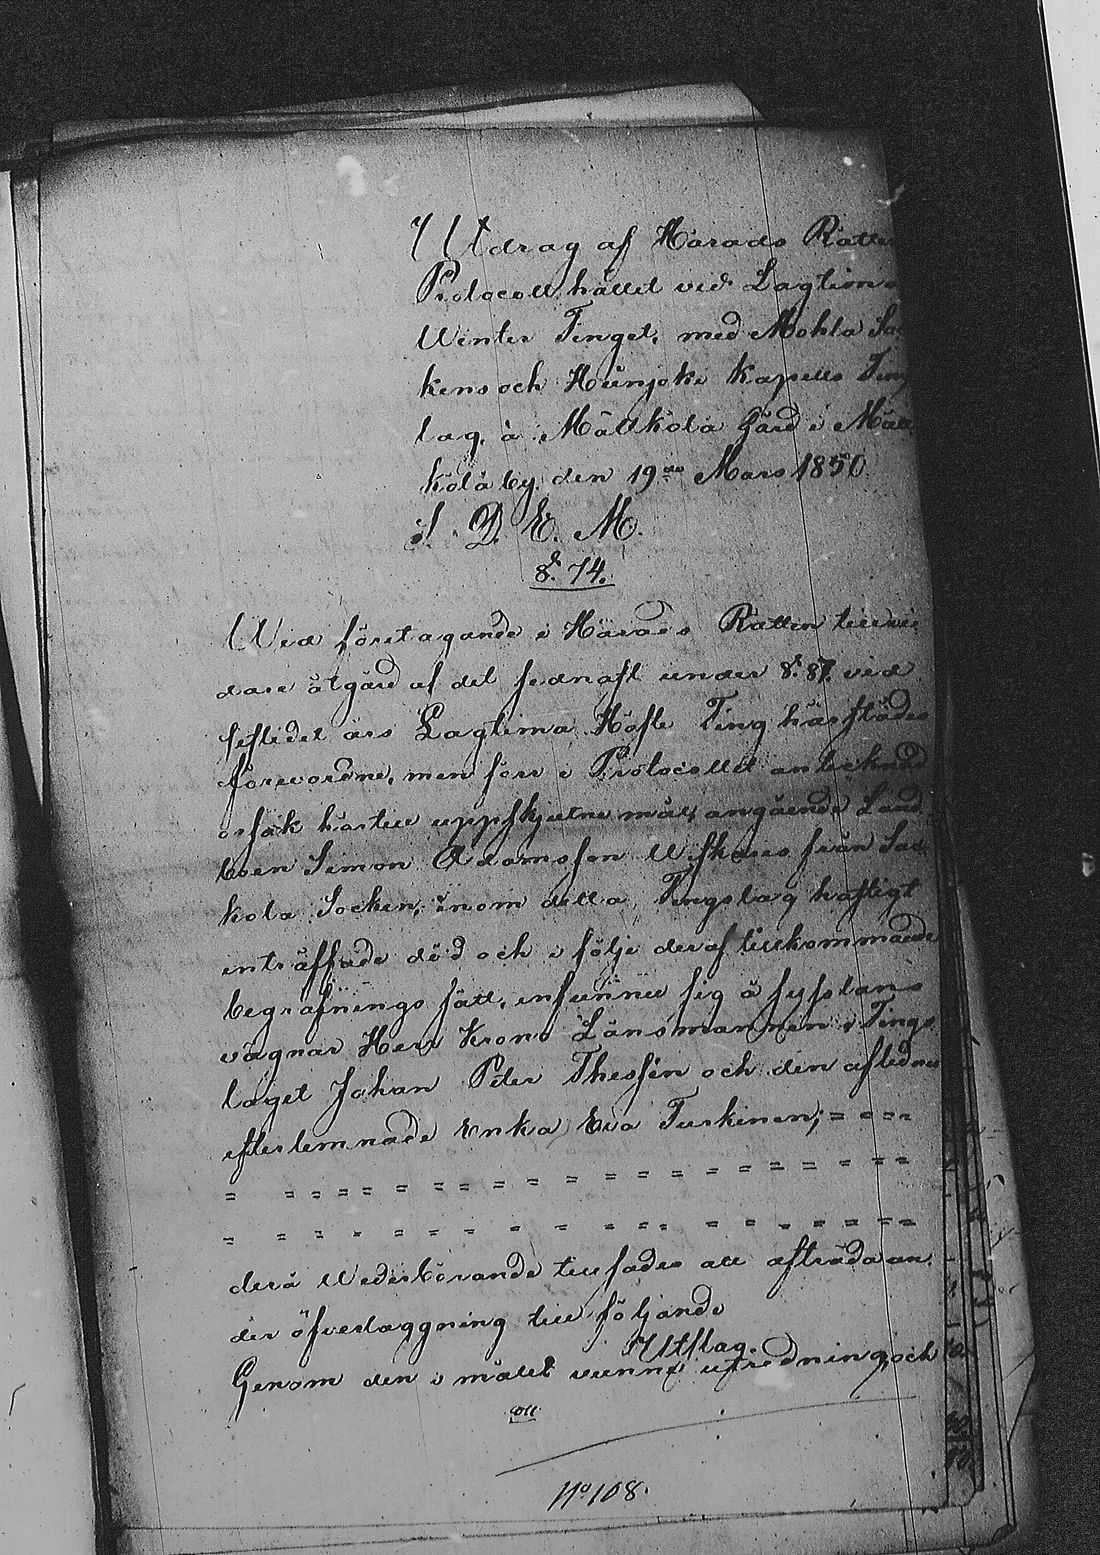 Utdrag af Härads Rätten
Protocoll hållet vid Lagtima
Winter Tinget, med Mohla Soc
kens och Heinjoki Kapells Ting
lag, å Mälkölä Gård i Mäl
kölä by den 19de Mars 1850
S. D. E. M.
§. 74.
Wid företagande i Härads Rätten till vi
dare åtgärd af det sednast under §. 87. vid
sistlidet års Lagtima Höste Ting härstädes
förevordne, men förr i Protocollet antecknad
orsak härtill uppskjutne mål, angående Land
boen Simon Adamsson from från Sak
kola Socken, inom detta Tingslag hastigt
inträffade död och i följe deraf tillkommande
begrafnings sätt, infunno sig å sysslans
vägnar Herr Krono Länsmannen i Tings
laget Johan Peter Thesslin och den aflidnes
efterlemnade Enka Eva Turkinen; = = = =
= = = = = = = = = = = = = = = = =
= = = = = = = = = = = = = = = =
derå Wederbörande tillsades att afträda un
der öfverläggning till följande
Utslag.
Genom den i målet vunne utredning och
att
No 108.